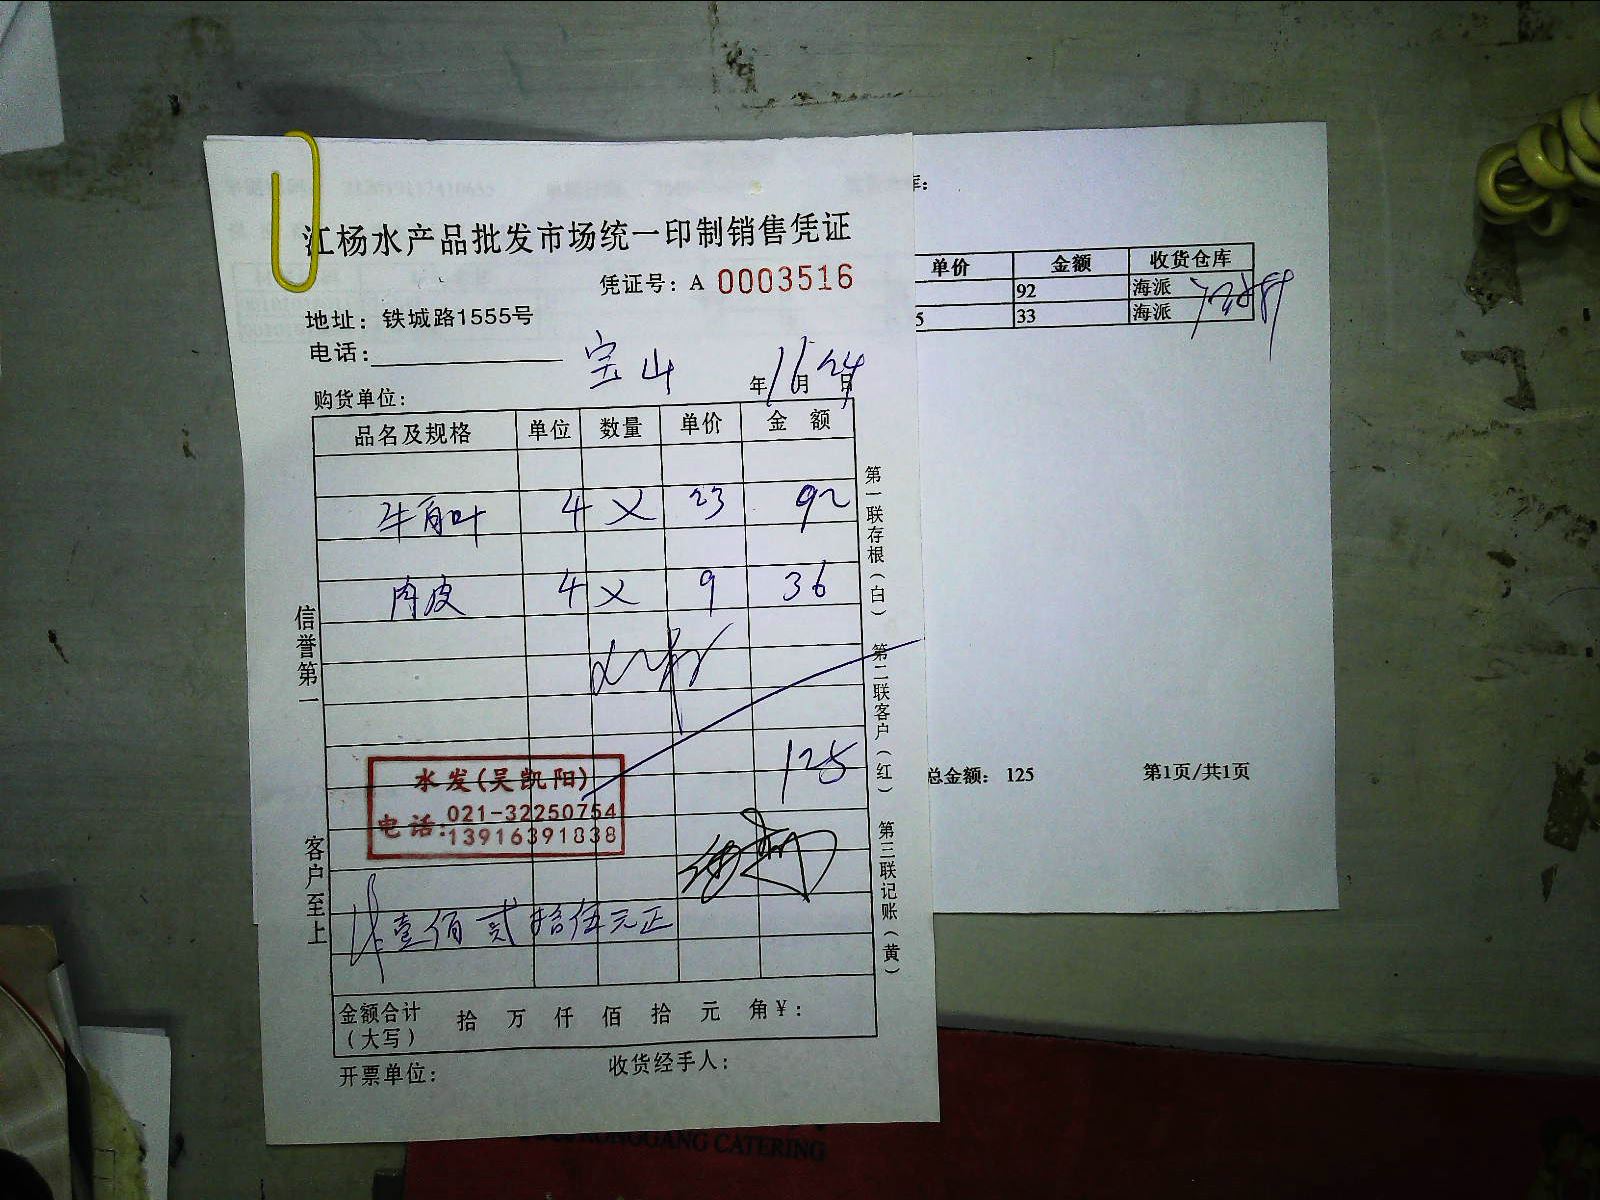 江杨水产品批发市场统一印制销售凭证
凭证号：A 0003516
地址：铁城路1555号
电话：
宝山
年 11月24日
购货单位：
品名及规格 单位 数量 单价 金额
牛百叶 4 23 92
肉皮 4 9 36
125
水发(吴凯阳)
电话：021-32250754
13916391838
壹佰贰拾伍元正
金额合计（大写） 拾 万 仟 佰 拾 元 角¥：
开票单位： 收货经手人：
信誉第一
客户至上
第一联存根（白） 第二联客户（红） 第三联记账（黄）
库：
单价 金额 收货仓库
92 海派
5 33 海派
总金额： 125 第1页/共1页
CATERING